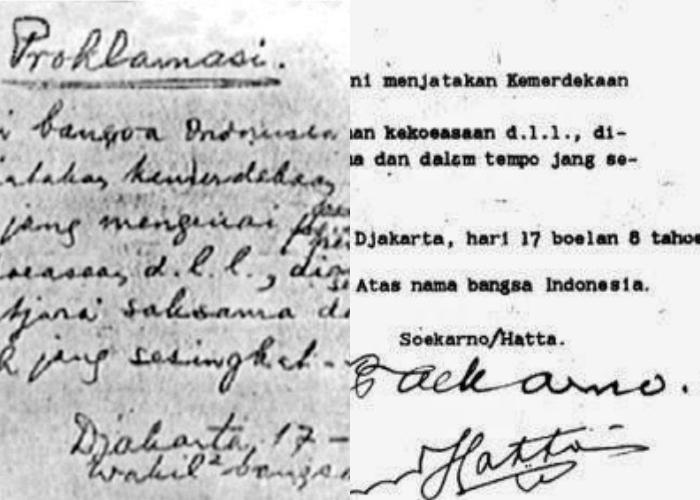 Proklamasi.
i bangsa Indonesia
atakan kemerdekaan
jang mengenai
oeasaan d.l.l., di
tjara saksama da
jang sesingkat-
Djakarta, 17 -
Wakil² bangsa
ni menjatakan Kemerdekaan
an kekoeasaan d.l.l., di-
a dan dalam tempo jang se-
Djakarta, hari 17 boelan 8 tahoe
Atas nama bangsa Indonesia.
Soekarno/Hatta.
Soekarno.
Hatta